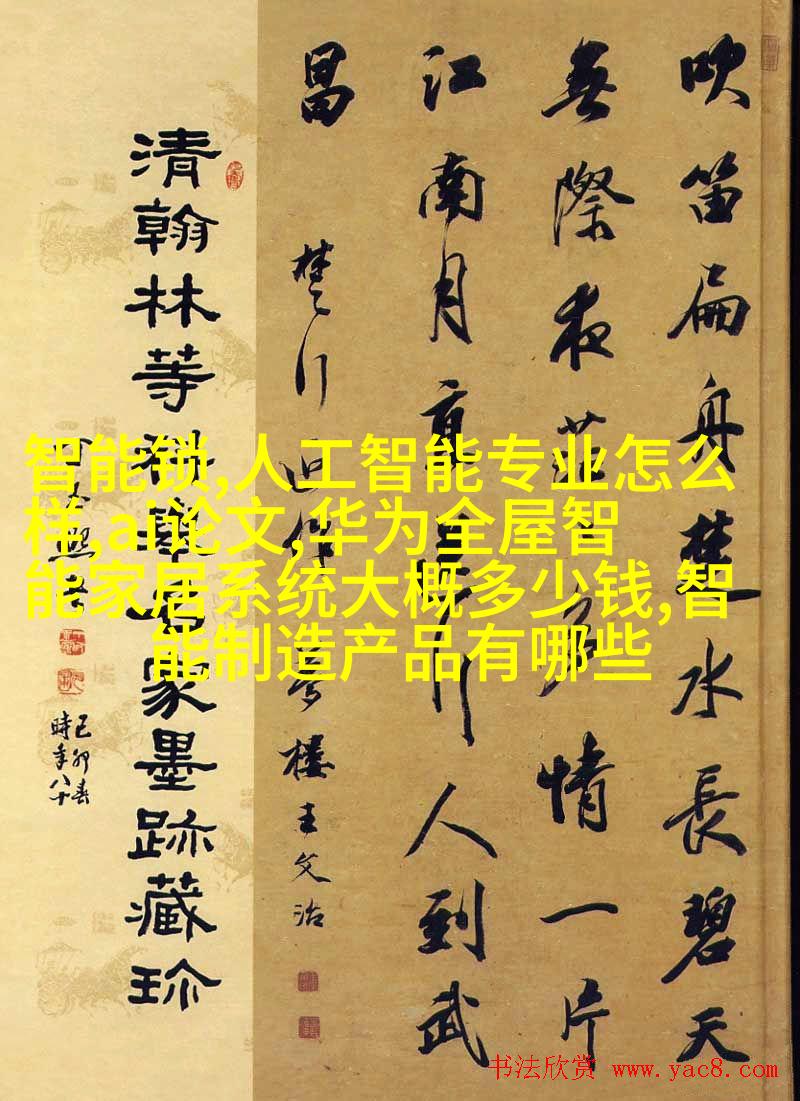 吹笛扁舟楚水長碧天
無際夜茫多情一片
江南月行人到武
昌
楚行 夢樓王文治
清翰林等科舉名家墨跡藏珍
己卯春
時年八十
智能锁,人工智能专业怎么
样,ai论文,华为全屋智
能家居系统大概多少钱,智
能制造产品有哪些
书法欣赏 www.yac8.com